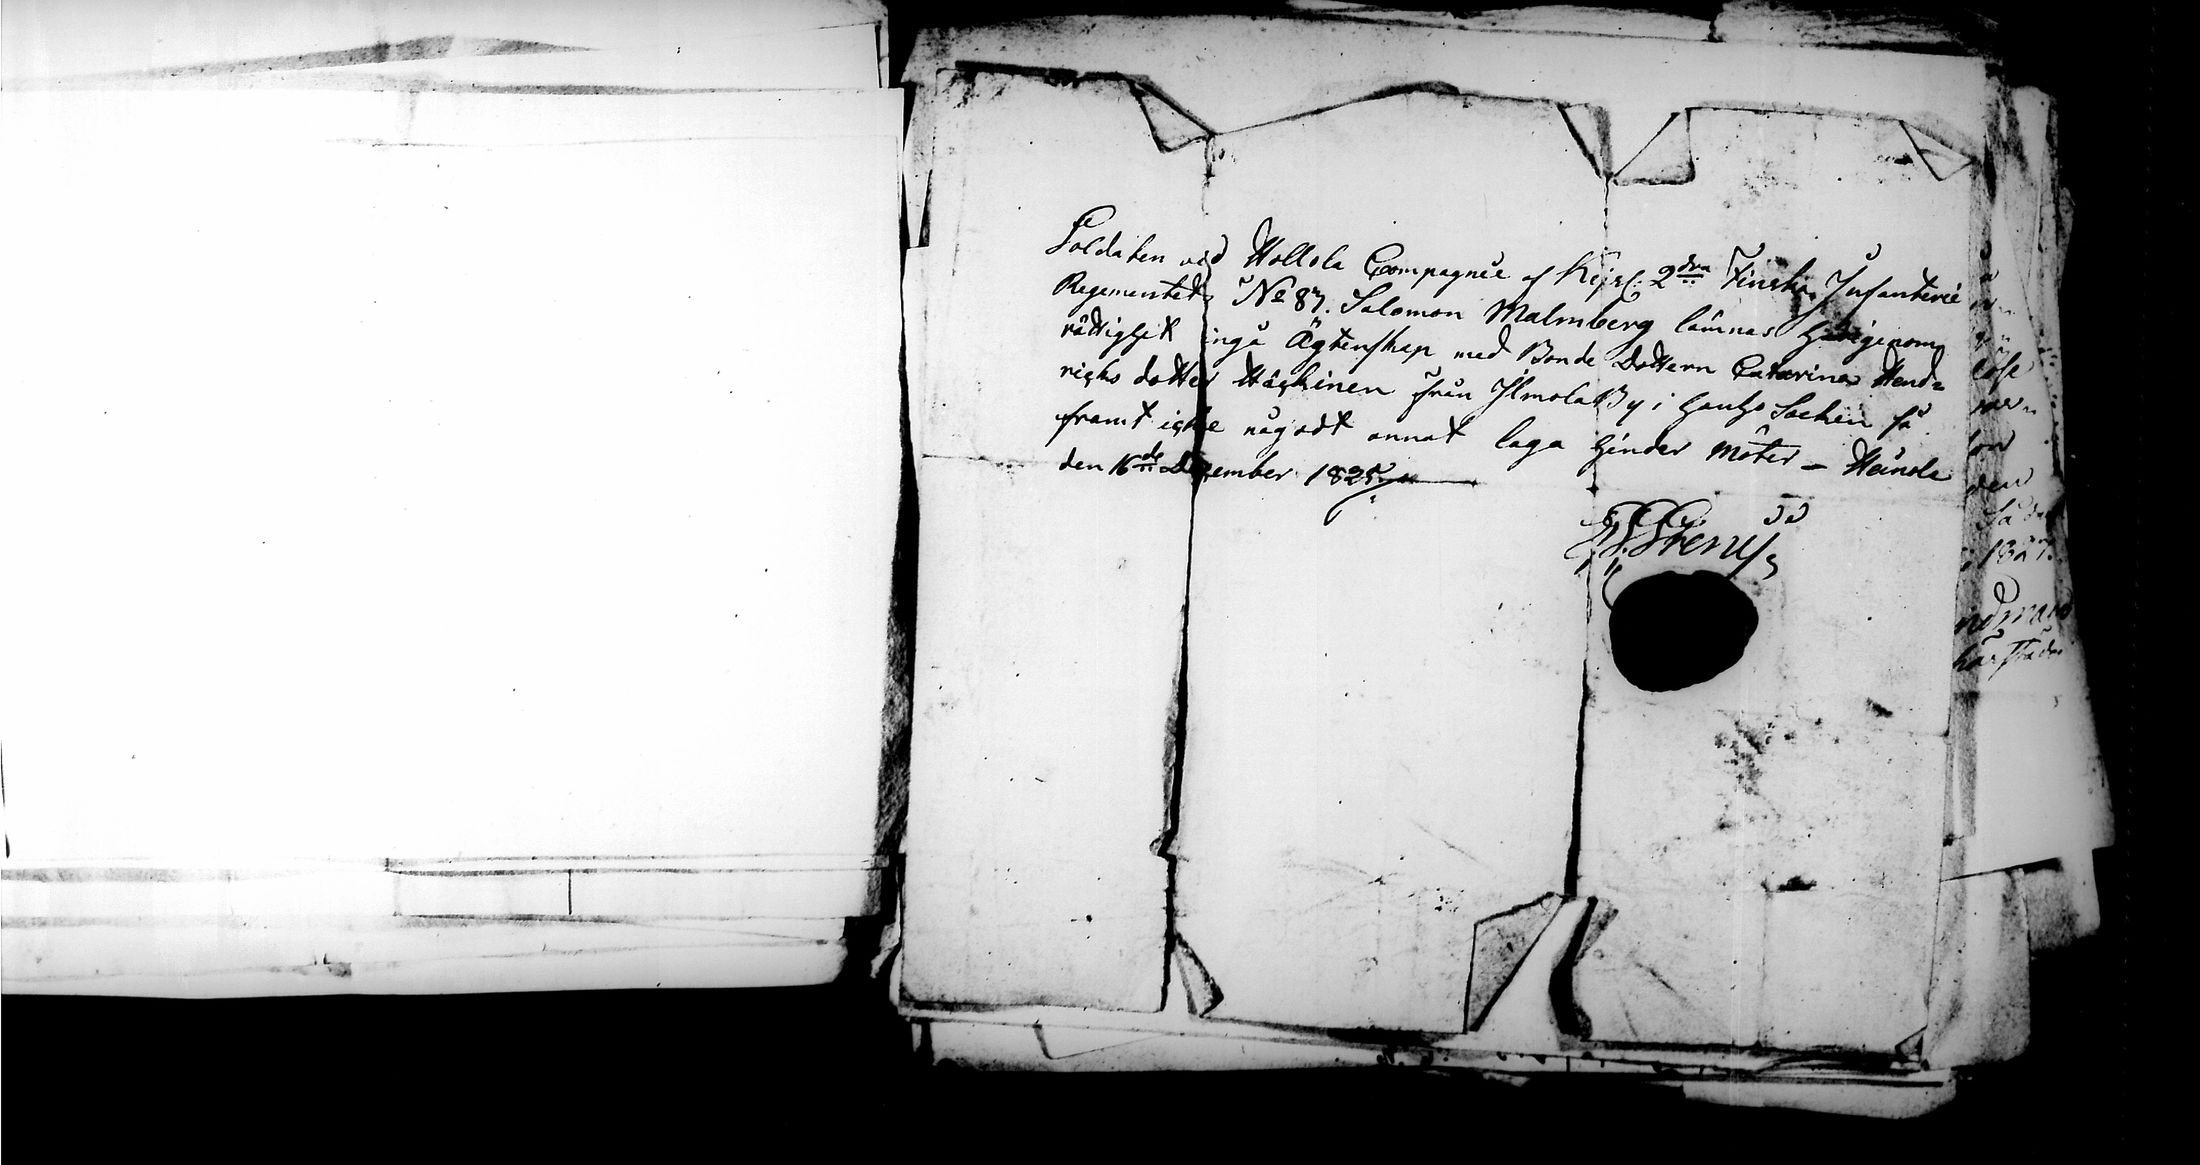 Soldaten vid Hollola Compagnie af Kejs. 2dra Finska Infanterie
Regementet, No 87. Salomon Malmberg lämnas härigenom
rättighet ingå Ägtenskap med Bonde Dottern Catarina Hend=
richs dotter Häckinen från Ilmola By i Hauho Sochen så
framt icke något annat laga hinder möter – Heinola
den 16de December 1825